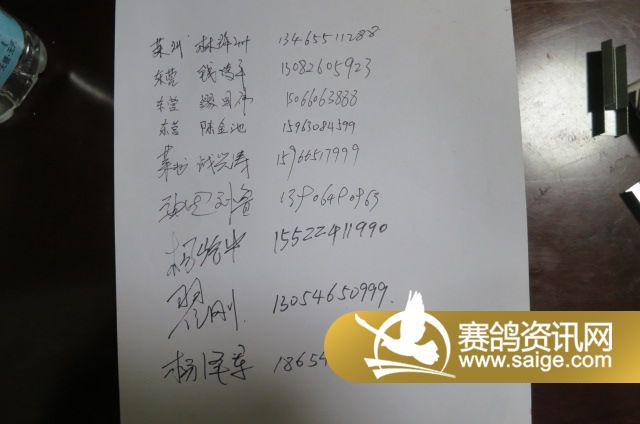 莱州 林 13465511288
东营 钱 13082605923
东营 国 15066063888
东营 陈金池 15963084599
莱州 战兴涛 15966517999
刘鲁 13906490963
杨 15522411990
翟刚 13054650999.
杨泽军 18654
赛鸽资讯网
www.saige.com